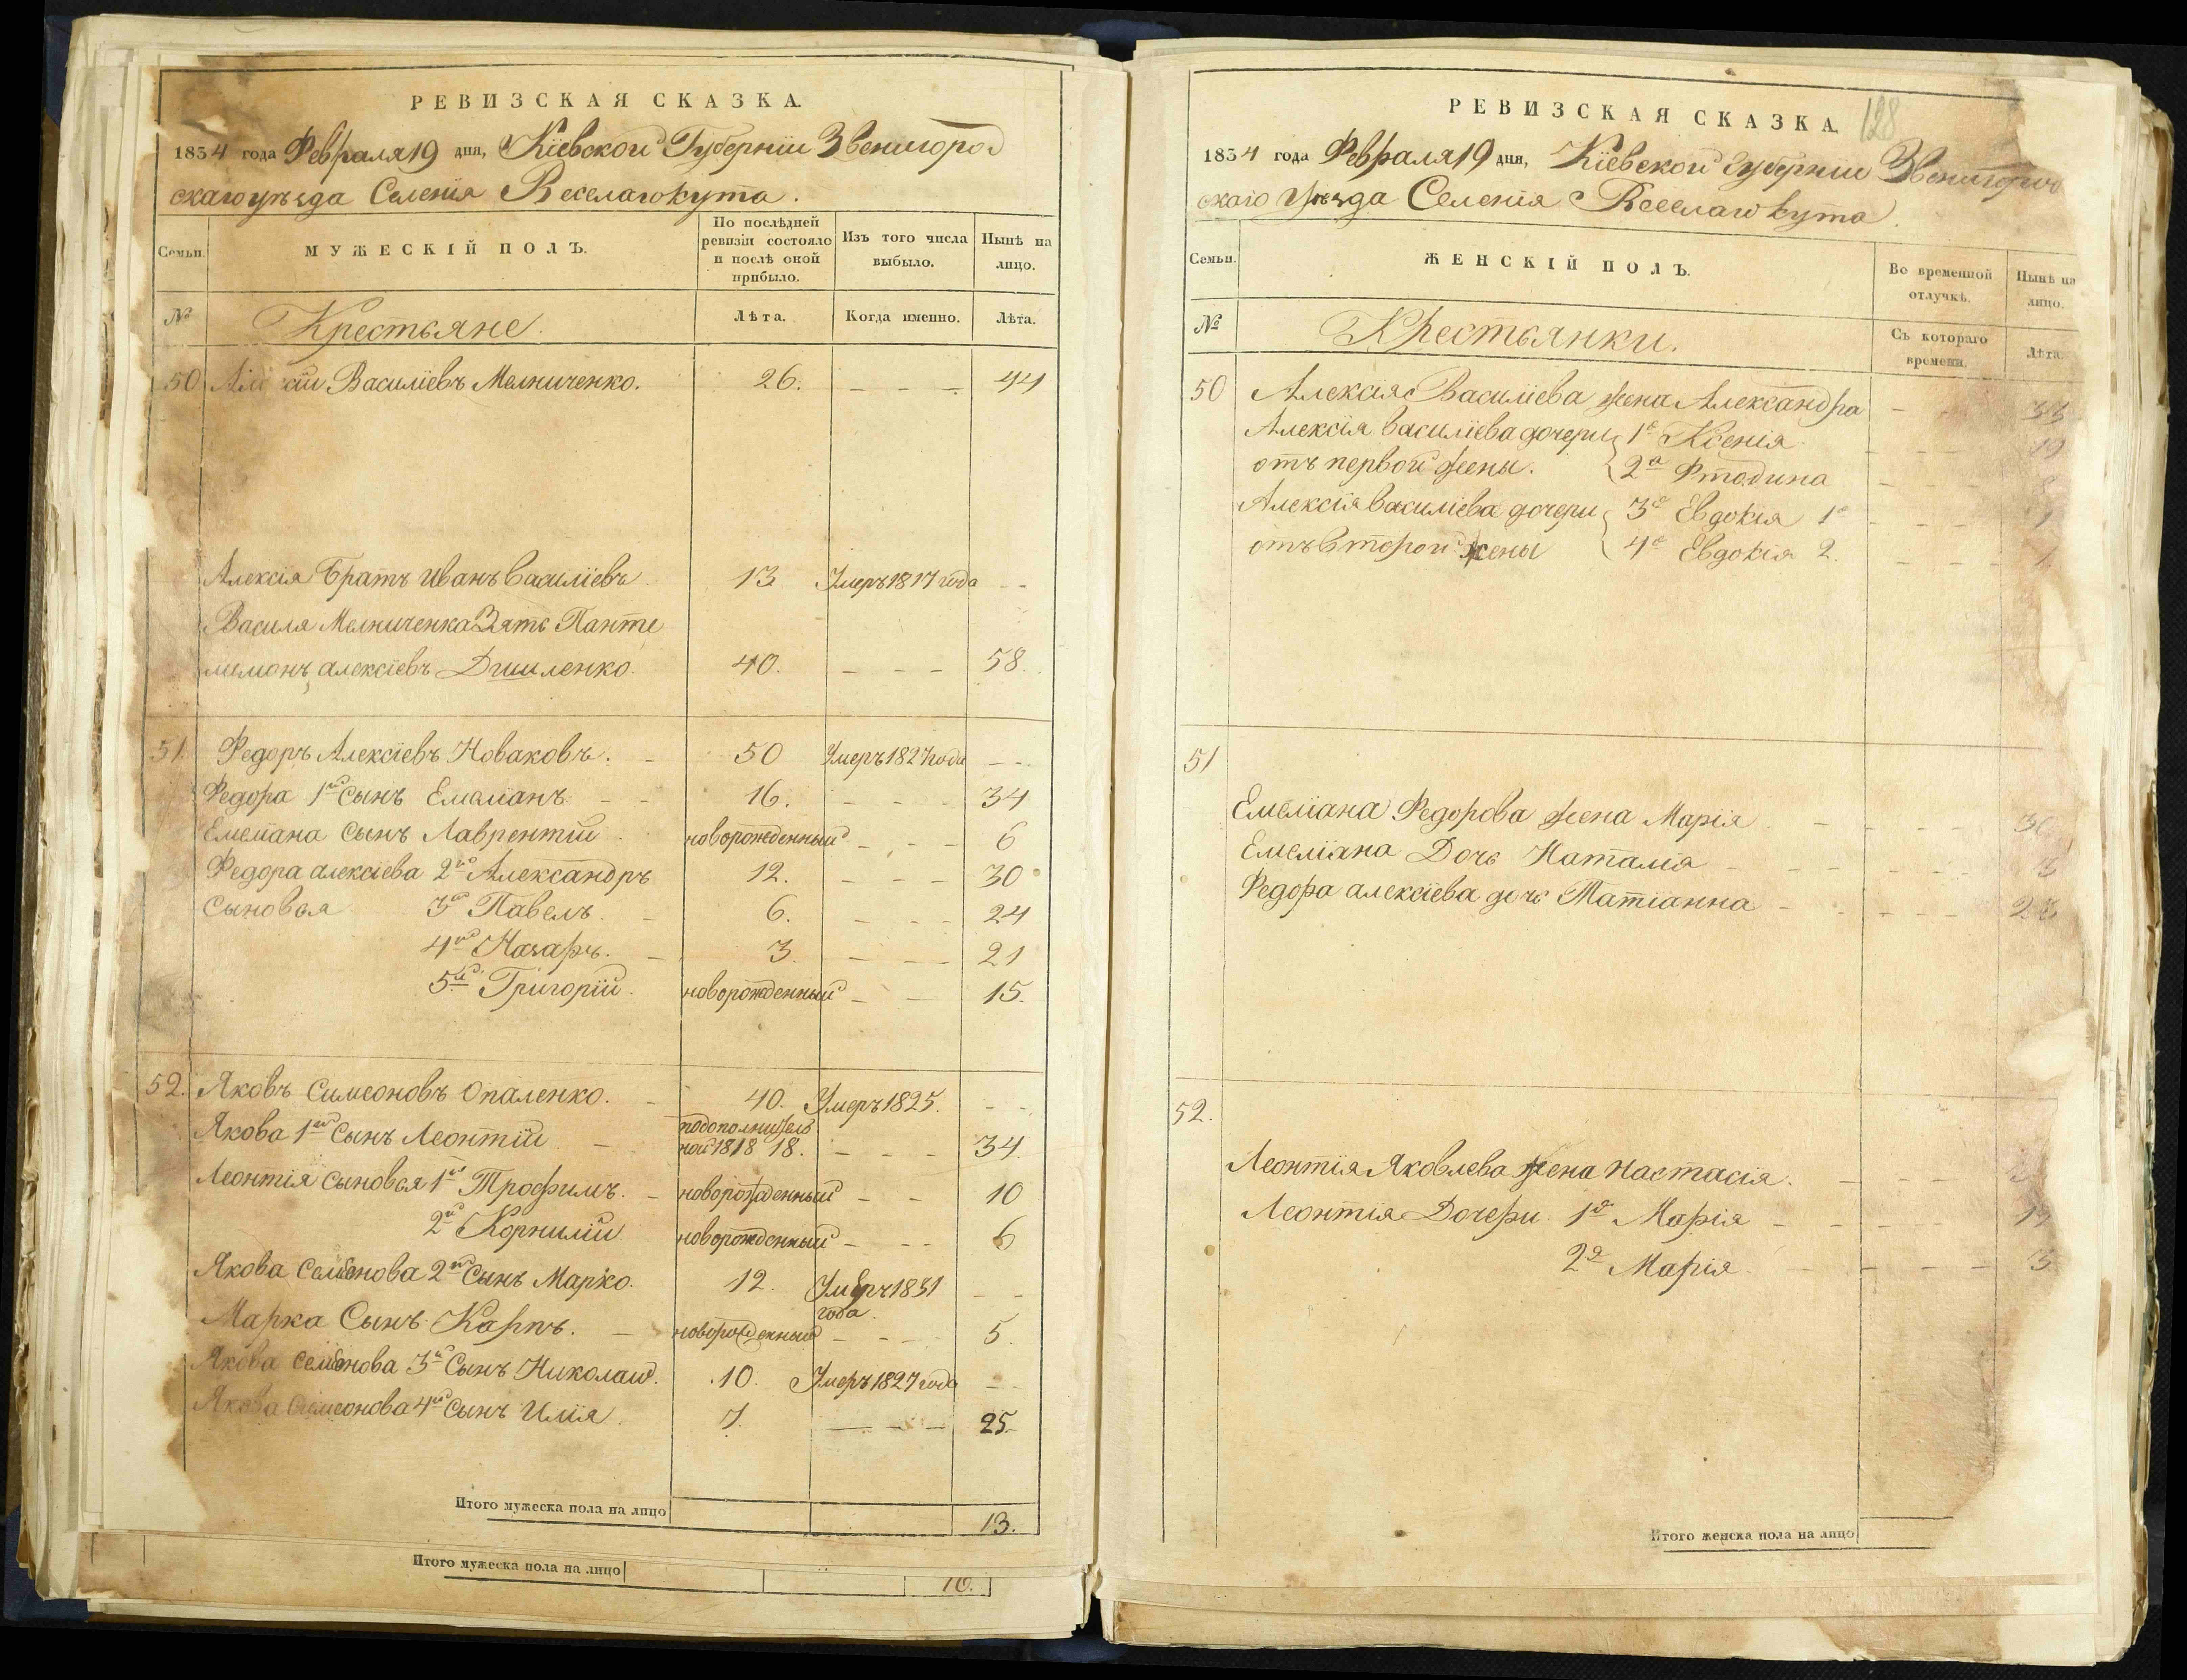 РЕВИЗСКАЯ СКАЗКА.
1834 года Февраля 19 дня, Кіевской Губерніи Звенигород
скаго уѣзда Селенія Веселагокута.
Семьи.
МУЖЕСКІЙ ПОЛЪ.
По послѣдней ревизіи состояло и послѣ оной прибыло.
Изъ того числа выбыло.
Нынѣ на лицо.
№
Крестьяне.
Лѣта.
Когда именно.
Лѣта.
50 Василіевъ Мелниченко. 26. - - - 44
Алексія Братъ Иванъ Василіевъ 13 Умеръ 1817 года - -
Василя Мелниченка Зять Панте
лимонъ алексіевъ 40. - - - 58.
51. Федоръ Алексіевъ Новаковъ. - 50 Умеръ 1827 года - -
Федора 1й Сынъ Емелианъ - - 16. - - - 34
Емелиана Сынъ Лаврентій новорожденный - - - 6
Федора алексіева 2й Александръ 12. - - - 30
Сыновья 3й Павелъ. - 6. - - - 24
4й Назаръ. - 3. - - - 21
5й Григорій. новорожденный - - 15.
52. Яковъ Симеоновъ Опаленко. - 40. Умеръ 1825. - -
Якова 1й Сынъ Леонтій - подополнитель
ной 1818 18. - - - 34.
Леонтія Сыновья 1й Трофимъ. - новорожденный - - 10
2й Корнилій новорожденный - - - 6
Якова Семенова 2й Сынъ Марко. 12. Умеръ 1831 - -
года.
Марка Сынъ Карпъ. - новорожденный - - - 5.
Якова Семенова 3й Сынъ Николай. 10. Умеръ 1827 года - -
Якова Симеонова 4й Сынъ Илія. 7. - - - 25.
Итого мужеска пола на лицо 13.
Итого мужеска пола на лицо
РЕВИЗСКАЯ СКАЗКА.
128
1834 года Февраля 19 дня, Кіевской Губерніи Звенигород
скаго Уѣзда Селенія Веселагокута.
Семьи.
ЖЕНСКІЙ ПОЛЪ.
Во временной отлучкѣ.
Нынѣ на лицо.
№
Крестьянки.
Съ котораго времени.
Лѣта.
50 Алексія Василіева жена Александра - - 33
Алексія василіева дочери 1я Ксенія - - - 19
отъ первой жены. 2я - - -
Алексія василіева дочери 3я Евдокія 1я - - -
отъ второй жены 4я Евдокія 2. - - -
51
Емелиана Федорова жена Марія - - - -
Емелиана Дочь Наталия - - - -
Федора алексіева дочь Татіанна - - - -
52.
Леонтія Яковлева жена Настасія. - - -
Леонтія Дочери 1я Марія - - - -
2я Марія - - - - 3
Итого женска пола на лицо